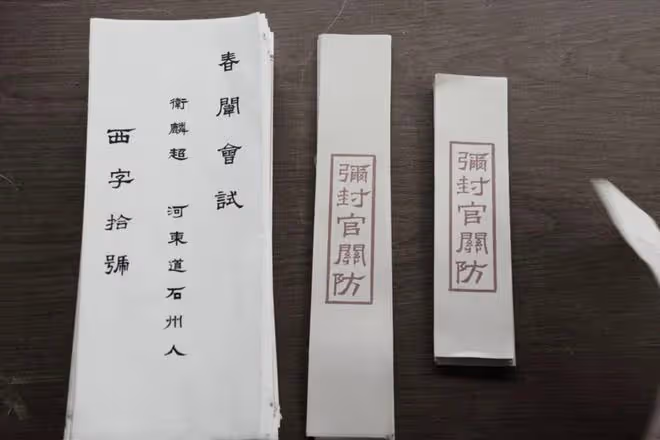 春闈會試
衛麟超 河東道石州人
西字拾號
彌封官關防
彌封官關防